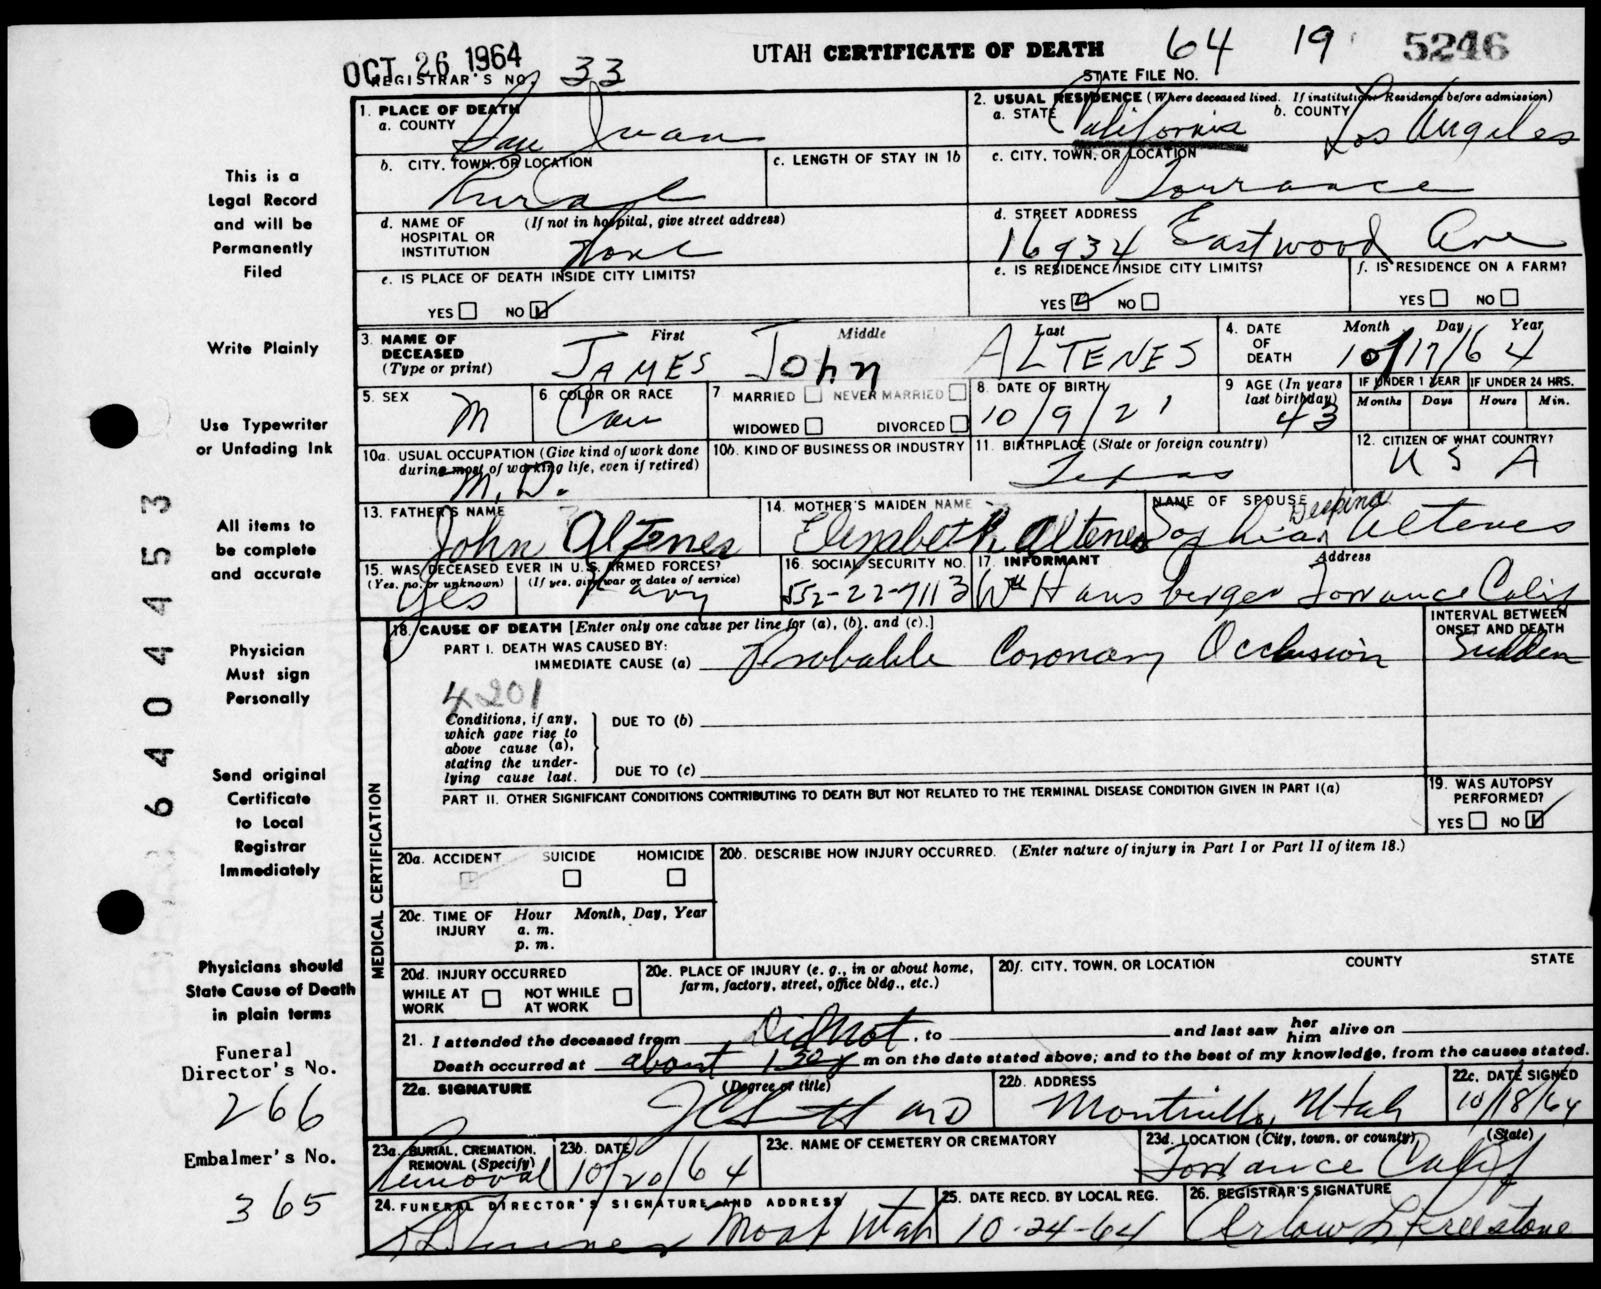 OCT 26 1964
REGISTRAR'S NO. 33
UTAH CERTIFICATE OF DEATH
STATE FILE NO. 64 19 5246
This is a
Legal Record
and will be
Permanently
Filed
Write Plainly
Use Typewriter
or Unfading Ink
All items to
be complete
and accurate
Physician
Must sign
Personally
Send original
Certificate
to Local
Registrar
Immediately
Physicians should
State Cause of Death
in plain terms
Funeral
Director's No.
266
Embalmer's No.
365
6404453
1. PLACE OF DEATH
a. COUNTY San Juan
2. USUAL RESIDENCE (Where deceased lived. If institution: Residence before admission)
a. STATE California b. COUNTY Los Angeles
b. CITY, TOWN, OR LOCATION Rural
c. LENGTH OF STAY IN 1b
c. CITY, TOWN, OR LOCATION Torrance
d. NAME OF HOSPITAL OR INSTITUTION (If not in hospital, give street address) None
d. STREET ADDRESS 16934 Eastwood Ave
e. IS PLACE OF DEATH INSIDE CITY LIMITS?
YES NO
e. IS RESIDENCE INSIDE CITY LIMITS?
YES NO
f. IS RESIDENCE ON A FARM?
YES NO
3. NAME OF DECEASED (Type or print) First Middle Last
JAMES John ALTENES
4. DATE OF DEATH Month Day Year
10/17/64
5. SEX M
6. COLOR OR RACE Cau
7 MARRIED NEVER MARRIED
WIDOWED DIVORCED
8. DATE OF BIRTH 10/9/21
9 AGE (In years last birthday) 43
IF UNDER 1 YEAR Months Days
IF UNDER 24 HRS. Hours Min.
10a. USUAL OCCUPATION (Give kind of work done during most of working life, even if retired) M.D.
10b. KIND OF BUSINESS OR INDUSTRY
11. BIRTHPLACE (State or foreign country) Texas
12. CITIZEN OF WHAT COUNTRY? USA
13. FATHER'S NAME John Altenes
14. MOTHER'S MAIDEN NAME Elizabeth Altenes
NAME OF SPOUSE Sophia Despina Altenes
15. WAS DECEASED EVER IN U.S. ARMED FORCES?
(Yes, no, or unknown) (If yes, give war or dates of service)
Yes Navy
16. SOCIAL SECURITY NO. 552-22-7113
17. INFORMANT Address
Wm Hansberger Torrance Calif
18. CAUSE OF DEATH [Enter only one cause per line for (a), (b), and (c).]
PART I. DEATH WAS CAUSED BY:
IMMEDIATE CAUSE (a) Probable Coronary Occlusion
INTERVAL BETWEEN ONSET AND DEATH
Sudden
4201
Conditions, if any, which gave rise to above cause (a), stating the underlying cause last.
DUE TO (b)
DUE TO (c)
PART II. OTHER SIGNIFICANT CONDITIONS CONTRIBUTING TO DEATH BUT NOT RELATED TO THE TERMINAL DISEASE CONDITION GIVEN IN PART I(a)
19. WAS AUTOPSY PERFORMED?
YES NO
MEDICAL CERTIFICATION
20a. ACCIDENT SUICIDE HOMICIDE
20b. DESCRIBE HOW INJURY OCCURRED. (Enter nature of injury in Part I or Part II of item 18.)
20c. TIME OF INJURY Hour Month, Day, Year
a. m.
p. m.
20d. INJURY OCCURRED
WHILE AT WORK NOT WHILE AT WORK
20e. PLACE OF INJURY (e. g., in or about home, farm, factory, street, office bldg., etc.)
20f. CITY, TOWN, OR LOCATION COUNTY STATE
21. I attended the deceased from Did Not, to and last saw her him alive on
Death occurred at about m on the date stated above; and to the best of my knowledge, from the causes stated.
22a. SIGNATURE (Degree or title)
MD
22b. ADDRESS Monticello, Utah
22c. DATE SIGNED 10/18/64
23a. BURIAL, CREMATION, REMOVAL (Specify) Removal
23b. DATE 10/20/64
23c. NAME OF CEMETERY OR CREMATORY
23d. LOCATION (City, town, or county) (State)
Torrance Calif
24. FUNERAL DIRECTOR'S SIGNATURE AND ADDRESS
Moab Utah
25. DATE RECD. BY LOCAL REG. 10-24-64
26. REGISTRAR'S SIGNATURE
Arlow L Freestone